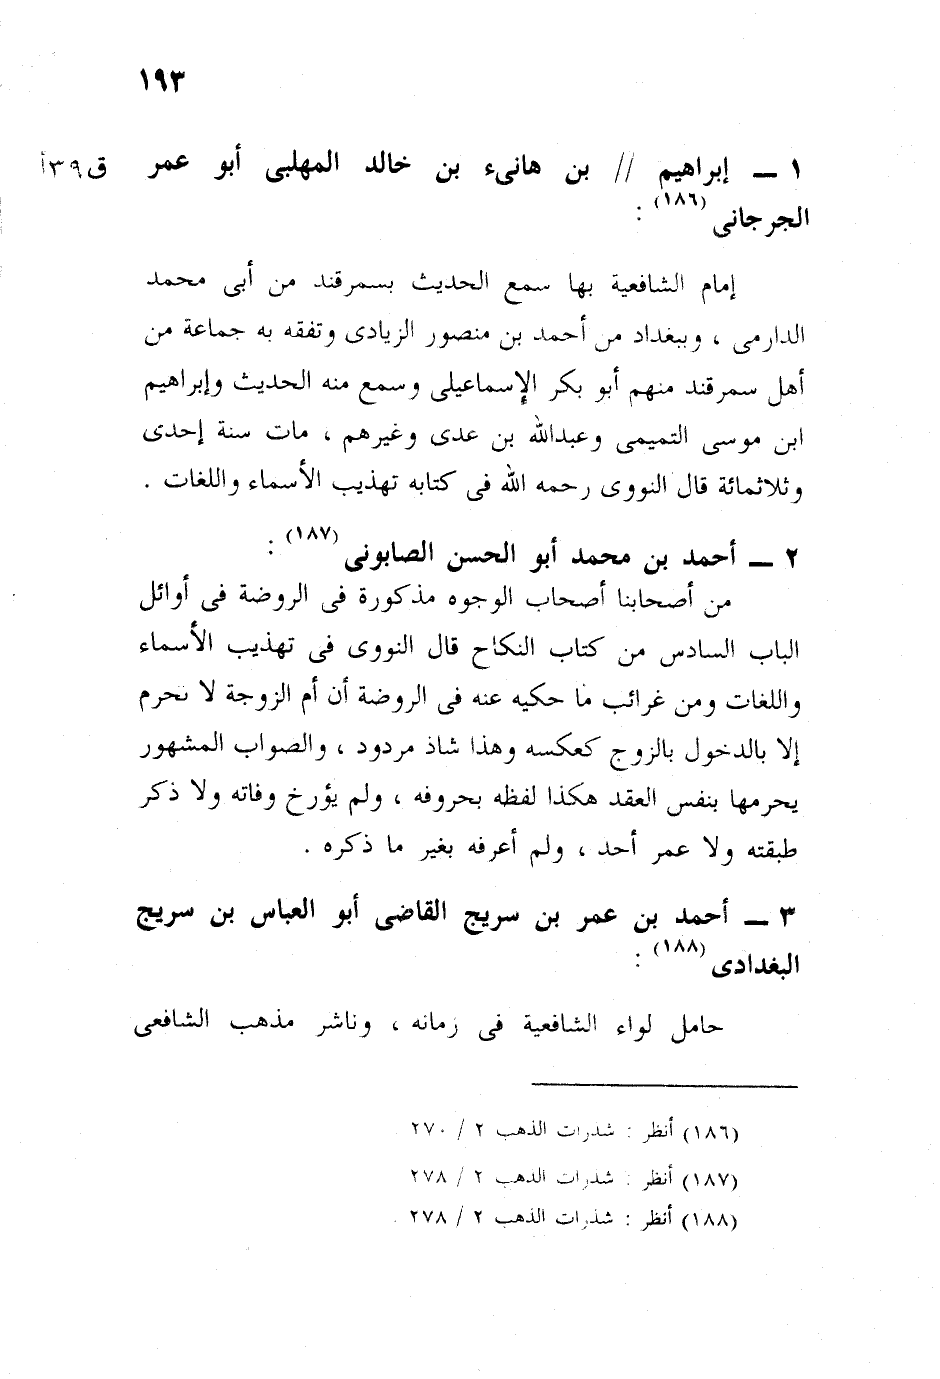 ١٩٣
١ ــ إبراهيم // بن هانىء بن خالد المهلبى أبو عمر ق٣٩أ
الجرجانى (١٨٦) :
إمام الشافعية بها سمع الحديث بسمرقند من أبى محمد
الدارمى ، وببغداد من أحمد بن منصور الزيادى وتفقه به جماعة من
أهل سمرقند منهم أبو بكر الإسماعيلى وسمع منه الحديث وإبراهيم
ابن موسى التميمى وعبدالله بن عدى وغيرهم ، مات سنة إحدى
وثلاثمائة قال النووى رحمه الله فى كتابه تهذيب الأسماء واللغات .
٢ ــ أحمد بن محمد أبو الحسن الصابونى (١٨٧) :
من أصحابنا أصحاب الوجوه مذكورة فى الروضة فى أوائل
الباب السادس من كتاب النكاح قال النووى فى تهذيب الأسماء
واللغات ومن غرائب ما حكيه عنه فى الروضة أن أم الزوجة لا تحرم
إلا بالدخول بالزوج كعكسه وهذا شاذ مردود ، والصواب المشهور
يحرمها بنفس العقد هكذا لفظه بحروفه ، ولم يؤرخ وفاته ولا ذكر
طبقته ولا عمر أحد ، ولم أعرفه بغير ما ذكره .
٣ ــ أحمد بن عمر بن سريج القاضى أبو العباس بن سريج
البغدادى (١٨٨) :
حامل لواء الشافعية فى زمانه ، وناشر مذهب الشافعى
(١٨٦) أنظر : شذرات الذهب ٢ / ٢٧٠
(١٨٧) أنظر : شذرات الذهب ٢ / ٢٧٨
(١٨٨) أنظر : شذرات الذهب ٢ / ٢٧٨ .